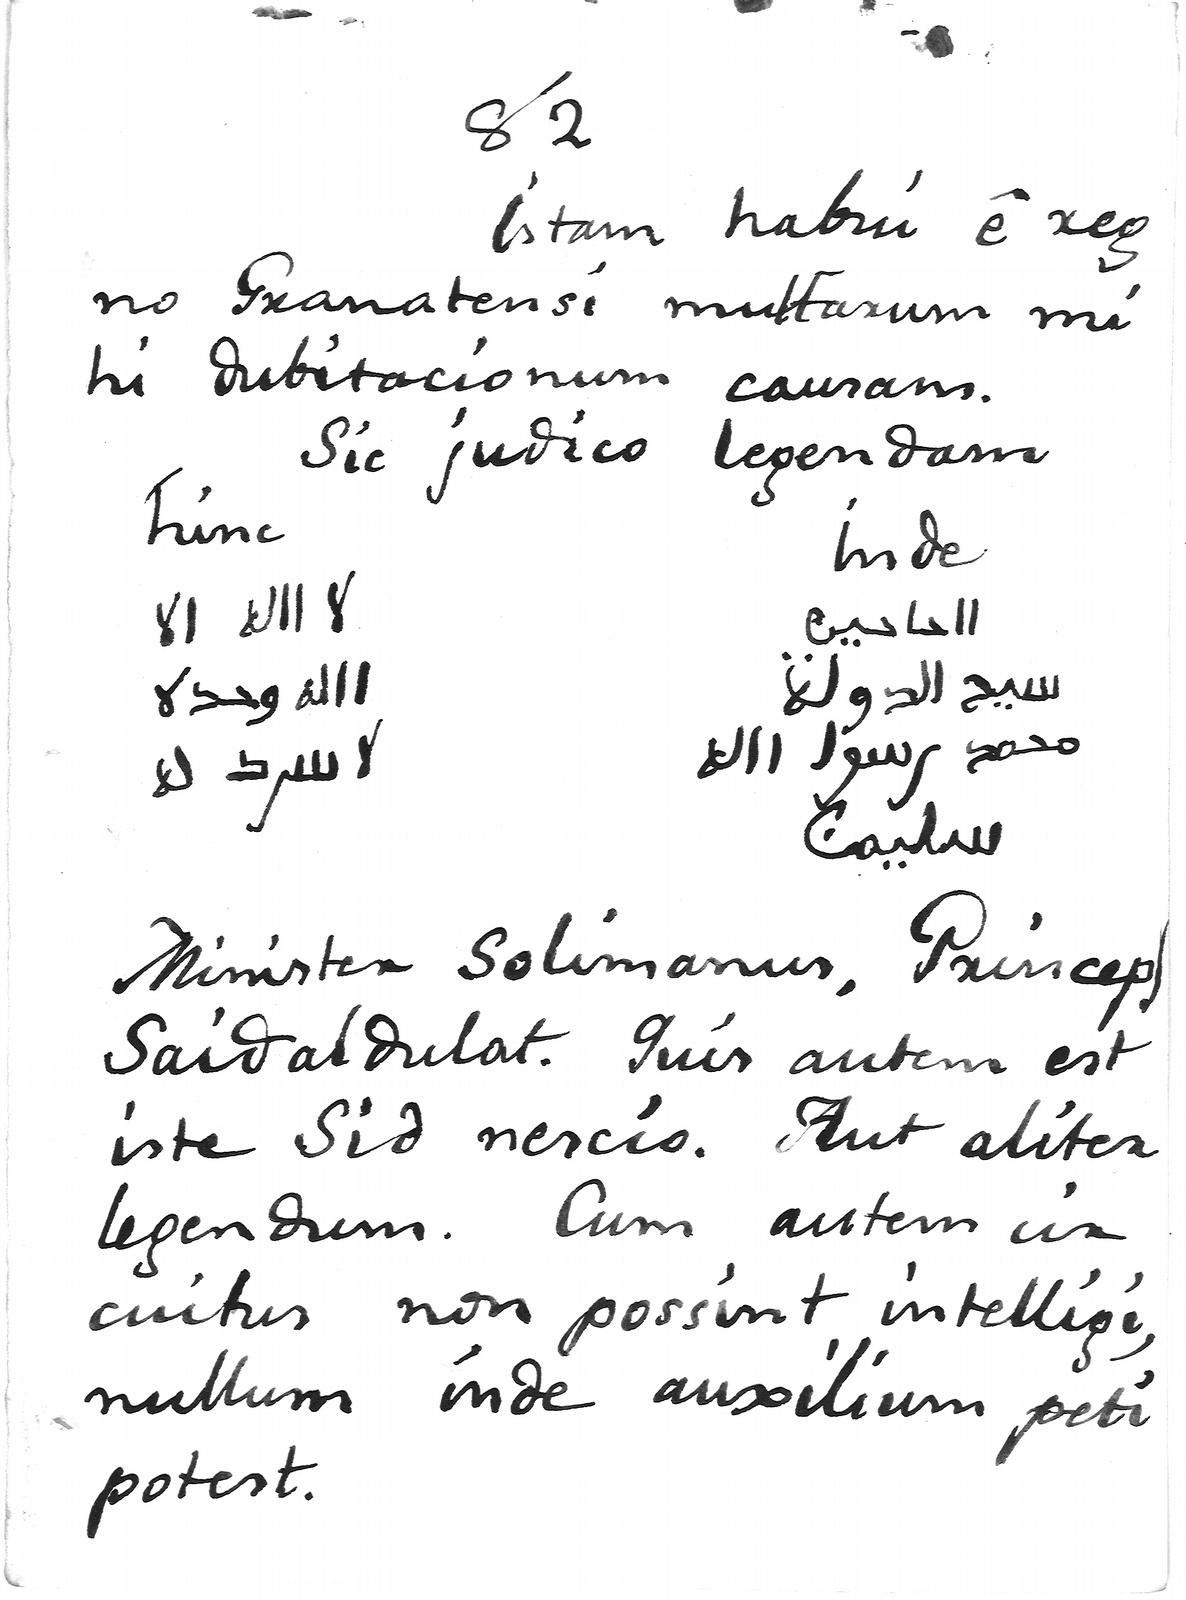 82
Istam habui ê reg
no Granatensi multarum mi
hi dubitacionum causam.
Sic judico legendam
hinc
inde
لا االه الا
االله وحده لا
لا سرىك له
الحاحىں
سيد الدولة
محمد رسول االله
سليمن
Minister Solimanus, Princeps
Saidaldulat. Quis autem est
iste Sid nescio. Aut aliter
legendum. Cum autem cir
cuitus non possint intelligi,
nullum inde auxilium peti
potest.